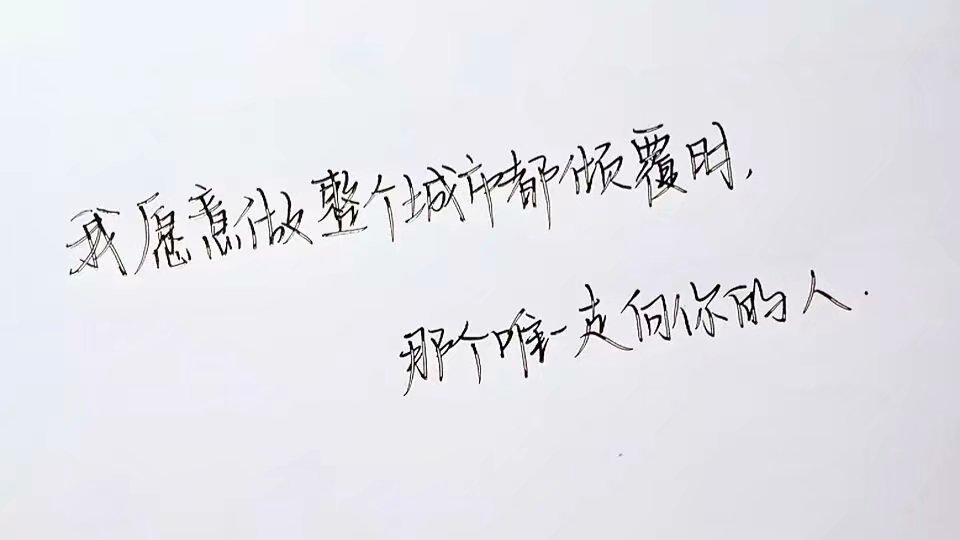 我愿意做整个城市都倾覆时,
那个唯一走向你的人.